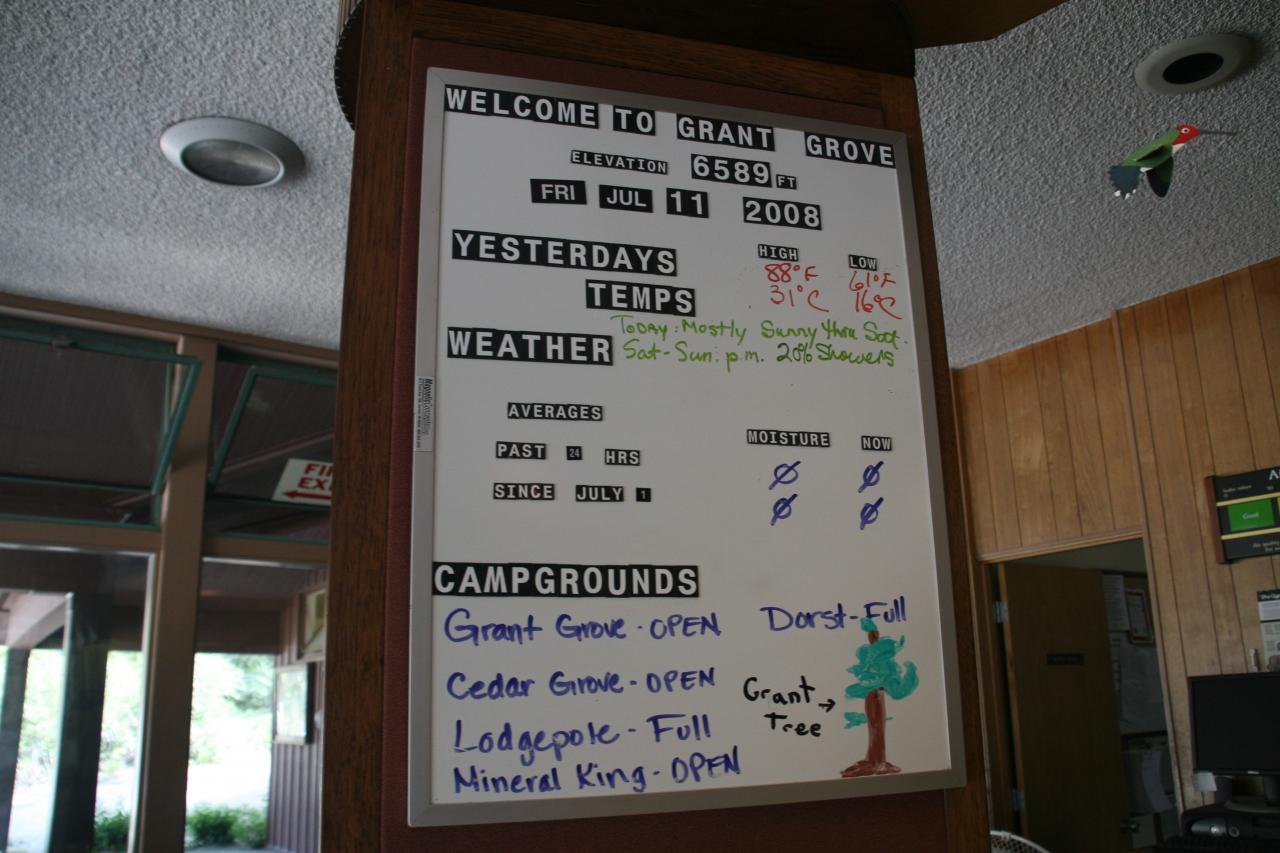 WELCOME TO GRANT GROVE
ELEVATION 6589 FT
FRI JUL 11 2008
YESTERDAYS TEMPS
HIGH LOW
88°F 61°F
31°C 16°C
WEATHER
Today: Mostly Sunny thru Sat.
Sat-Sun: p.m. 20% Showers
AVERAGES
MOISTURE NOW
PAST 24 HRS Ø Ø
SINCE JULY 1 Ø Ø
CAMPGROUNDS
Grant Grove - OPEN Dorst-Full
Cedar Grove - OPEN
Lodgepole - Full
Mineral King - OPEN
Grant
Tree
FI
EX
Good